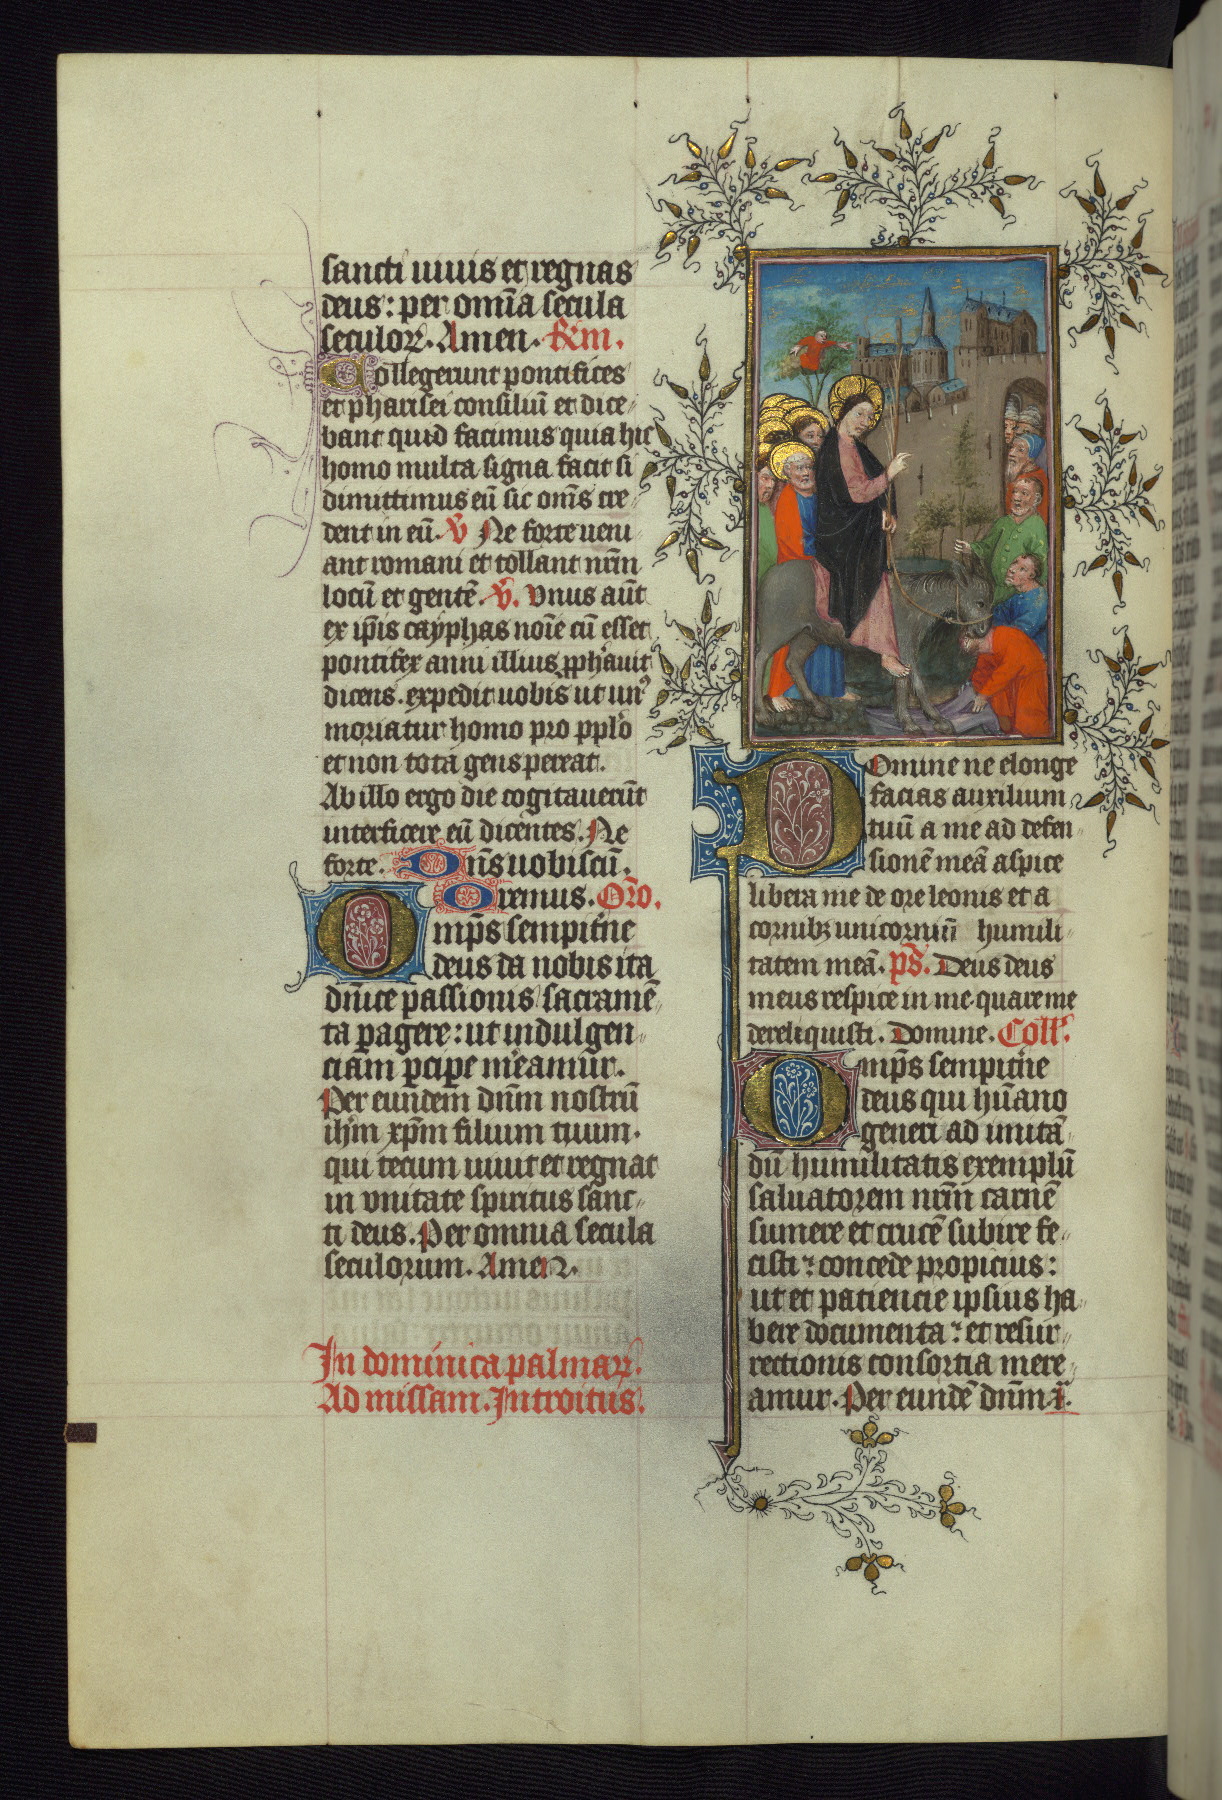 sancti uiuis et regnas
deus: per om̄ia secula
seculoꝝ. Amen. 
Collegerunt pontifices
et pharisei consiliū et dice-
bant quid facimus quia hic
homo multa signa facit si
dimittimus eū sic om̄s cre-
dent in eū. ℣ Ne forte ueni-
ant romani et tollant nr̄m
locū et gentē. ℣. Vnus aūt
ex ip̄is cayphas noīe cū esset
pontifex anni illius ꝓph̄auit
dicens. expedit uobis ut unꝰ
moriatur homo pro pplō
et non tota gens pereat.
Ab illo ergo die cogitauerūt
interficere eū dicentes. Ne
forte. Dn̄s uobiscū.
Oremus. Or̄o.
Omp̄s sempit̄ne
deus da nobis ita
dn̄ice passionis sacramē-
ta ꝑagere: ut indulgen-
ciam ꝑcipe m̄eamur.
Per eundem dn̄m nostrū
ih̄m xp̄m filium tuum.
qui tecum uiuit et regnat
in vnitate spiritus sanc-
ti deus. Per omnia secula
seculorum. Amen.
In dominica palmaꝝ.
Ad missam. Introitus.
Domine ne elonge
facias auxilium
tuū a me ad defen-
sionē meā aspice
libera me de ore leonis et a
cornibꝫ unicorniū humili-
tatem meā. p̄s. Deus deus
meus respice in me quare me
dereliquisti. Domine. Coll̄.
Omp̄s sempit̄ne
deus qui hūano
generi ad imitā-
dū humilitatis exemplū
saluatorem nr̄m carnē
sumere et crucē subire fe-
cisti: concede propicius:
ut et paciencie ipsius ha-
bere documenta: et resur-
rectionis consortia mere-
amur. Per eundē dn̄m